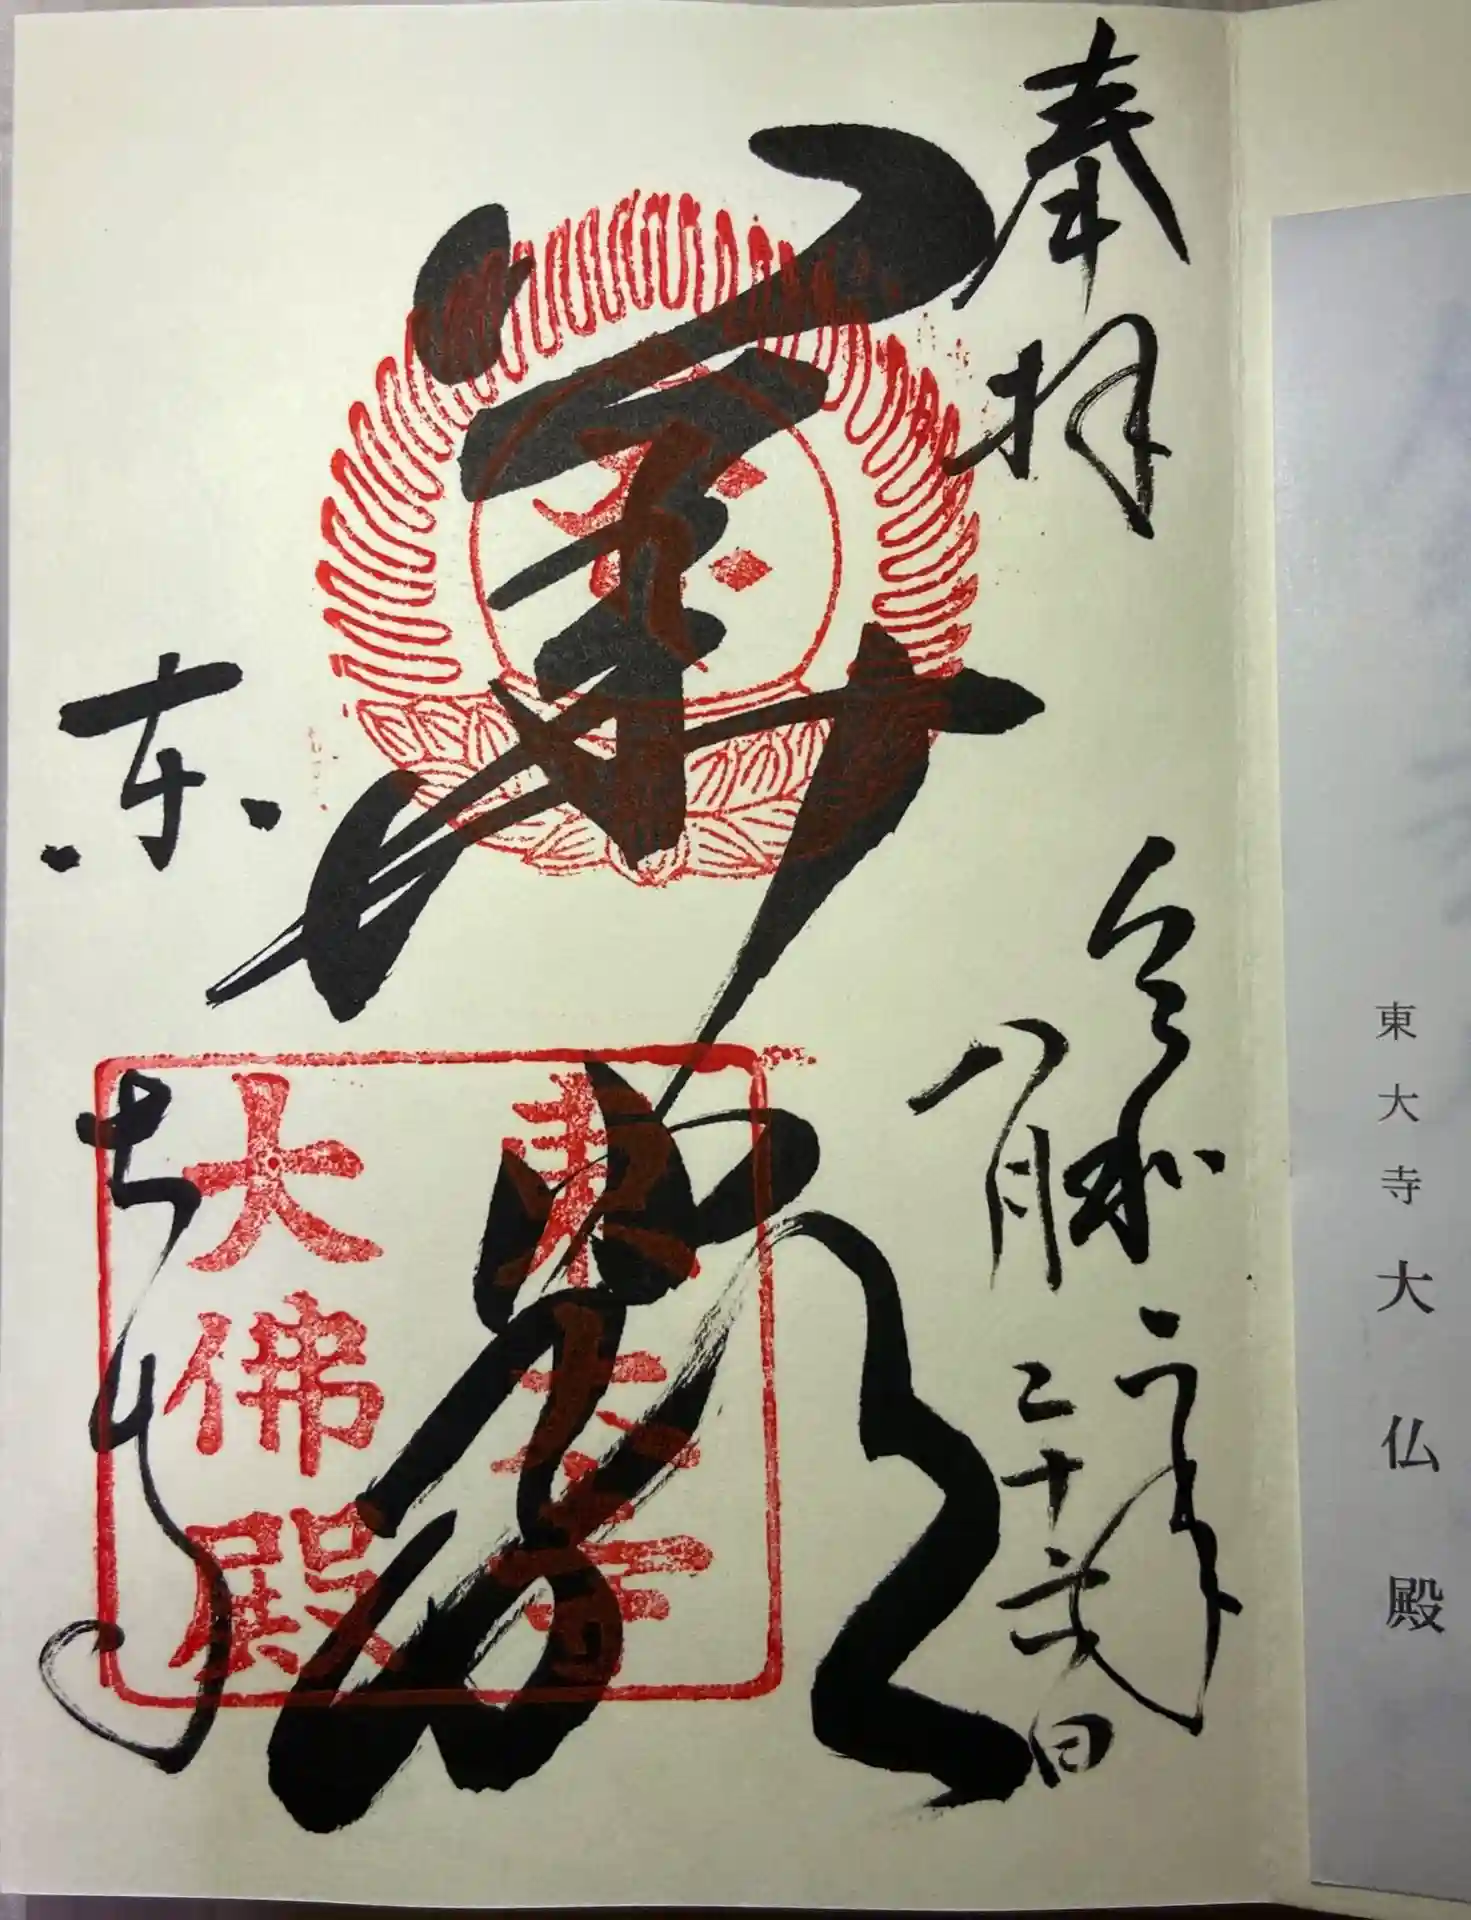 東大寺大仏殿
奉拝
令和年
八月二十日
華厳
東大寺
東大寺
大佛殿